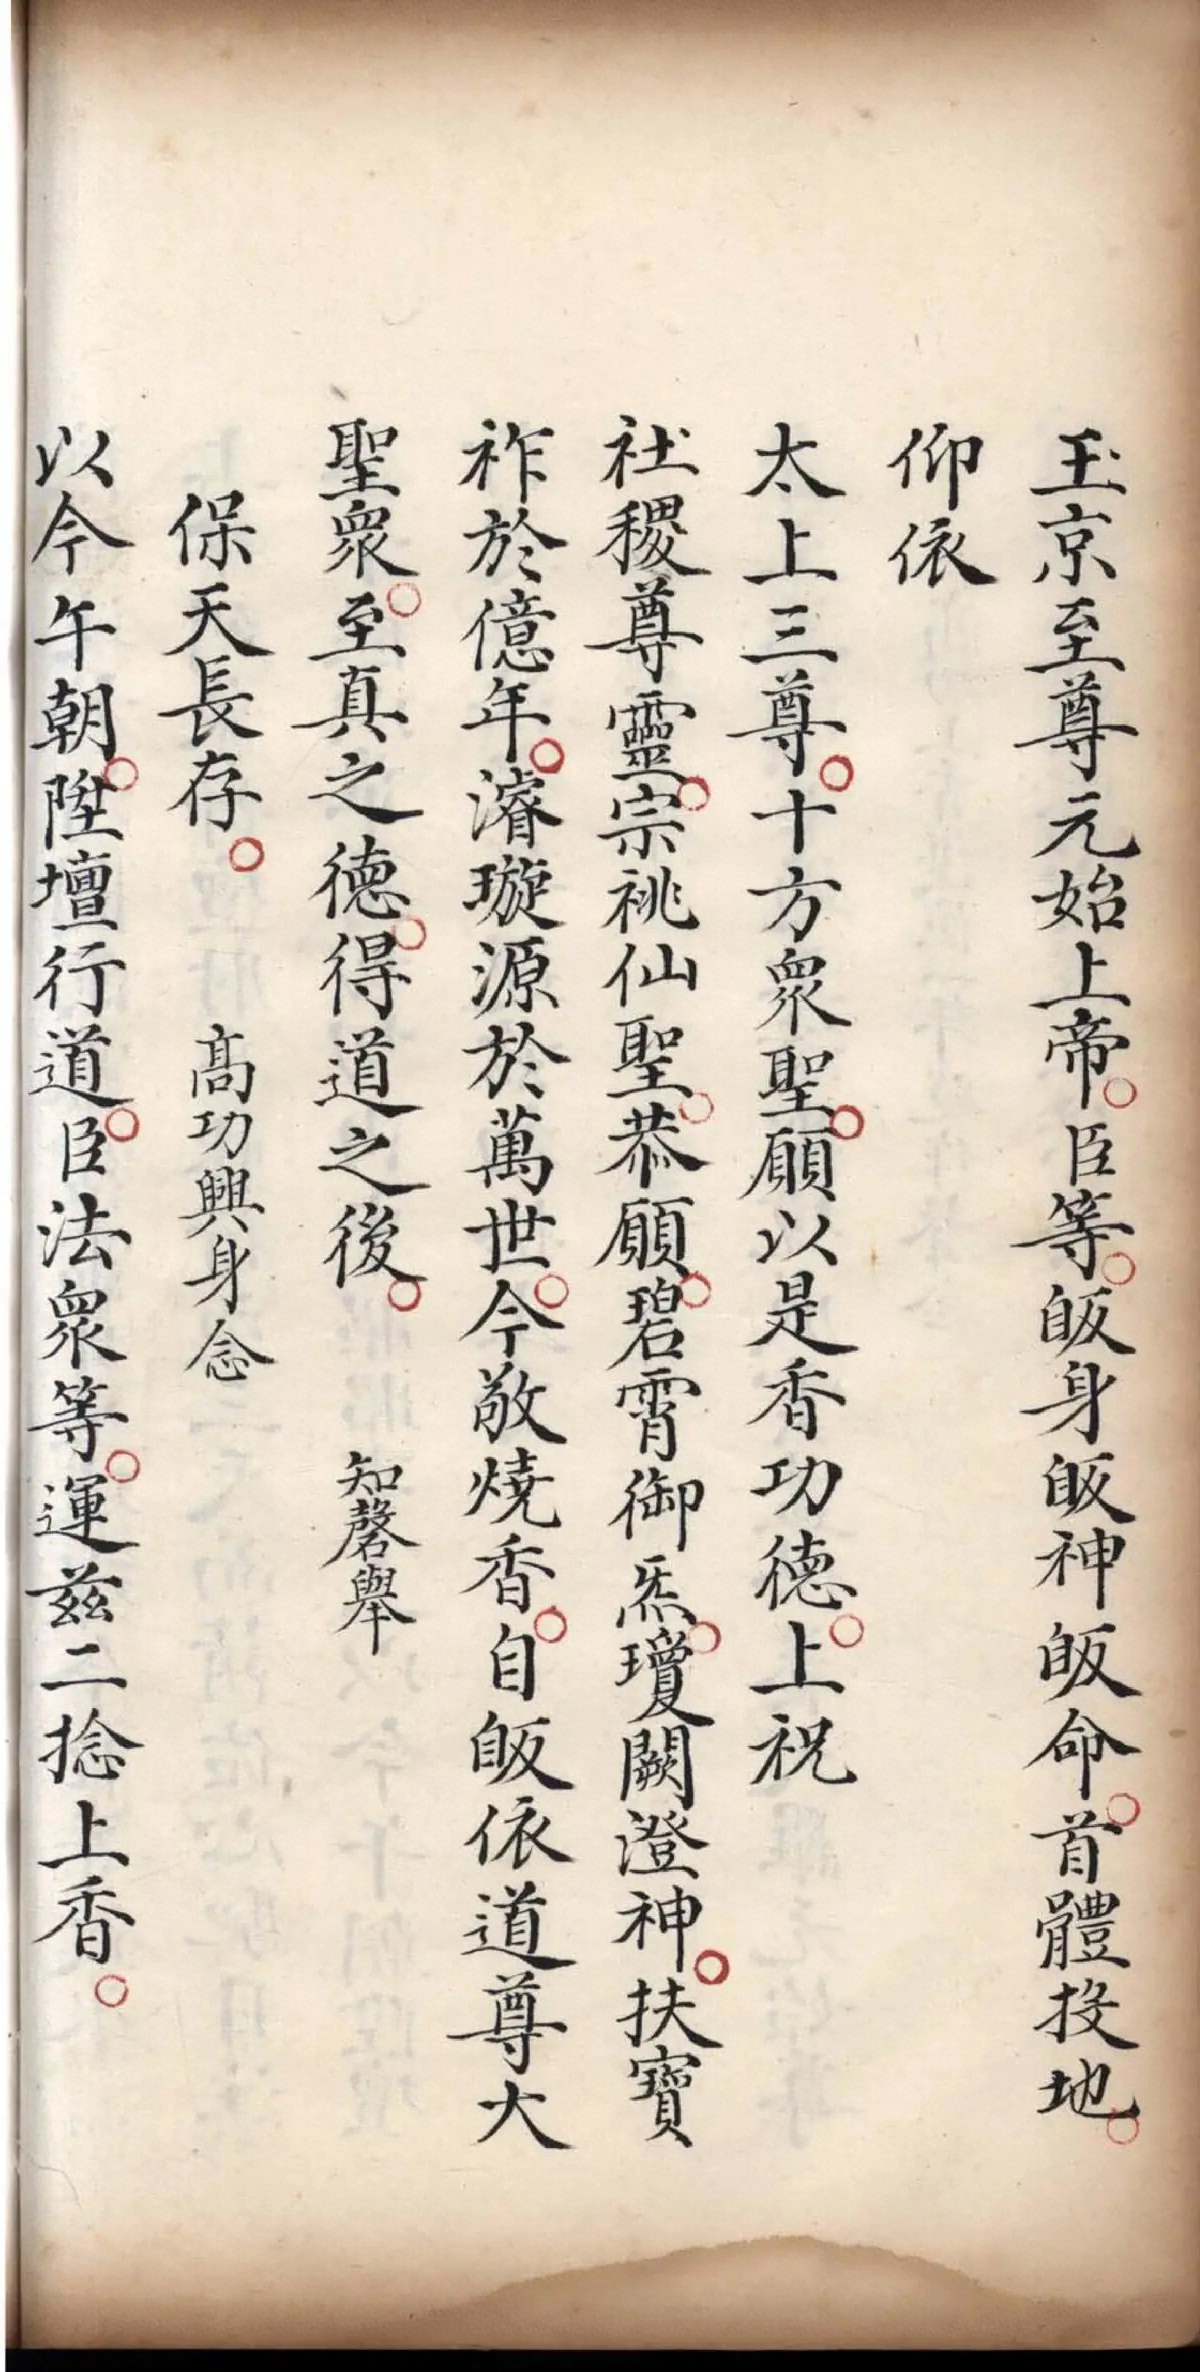 玉京至尊元始上帝○臣等○皈身皈神皈命○首體投地○
仰依
太上三尊○十方衆聖○願以是香功德○上祝
社稷尊靈○宗祧仙聖○恭願○碧霄御炁○瓊闕澄神○扶寶
祚於億年○濬璇源於萬世○今敬燒香○自皈依道尊大
聖衆○至真之德○得道之後○
知磬舉
保天長存○
高功興身念
以今午朝○陞壇行道○臣法衆等○運兹二捻上香○